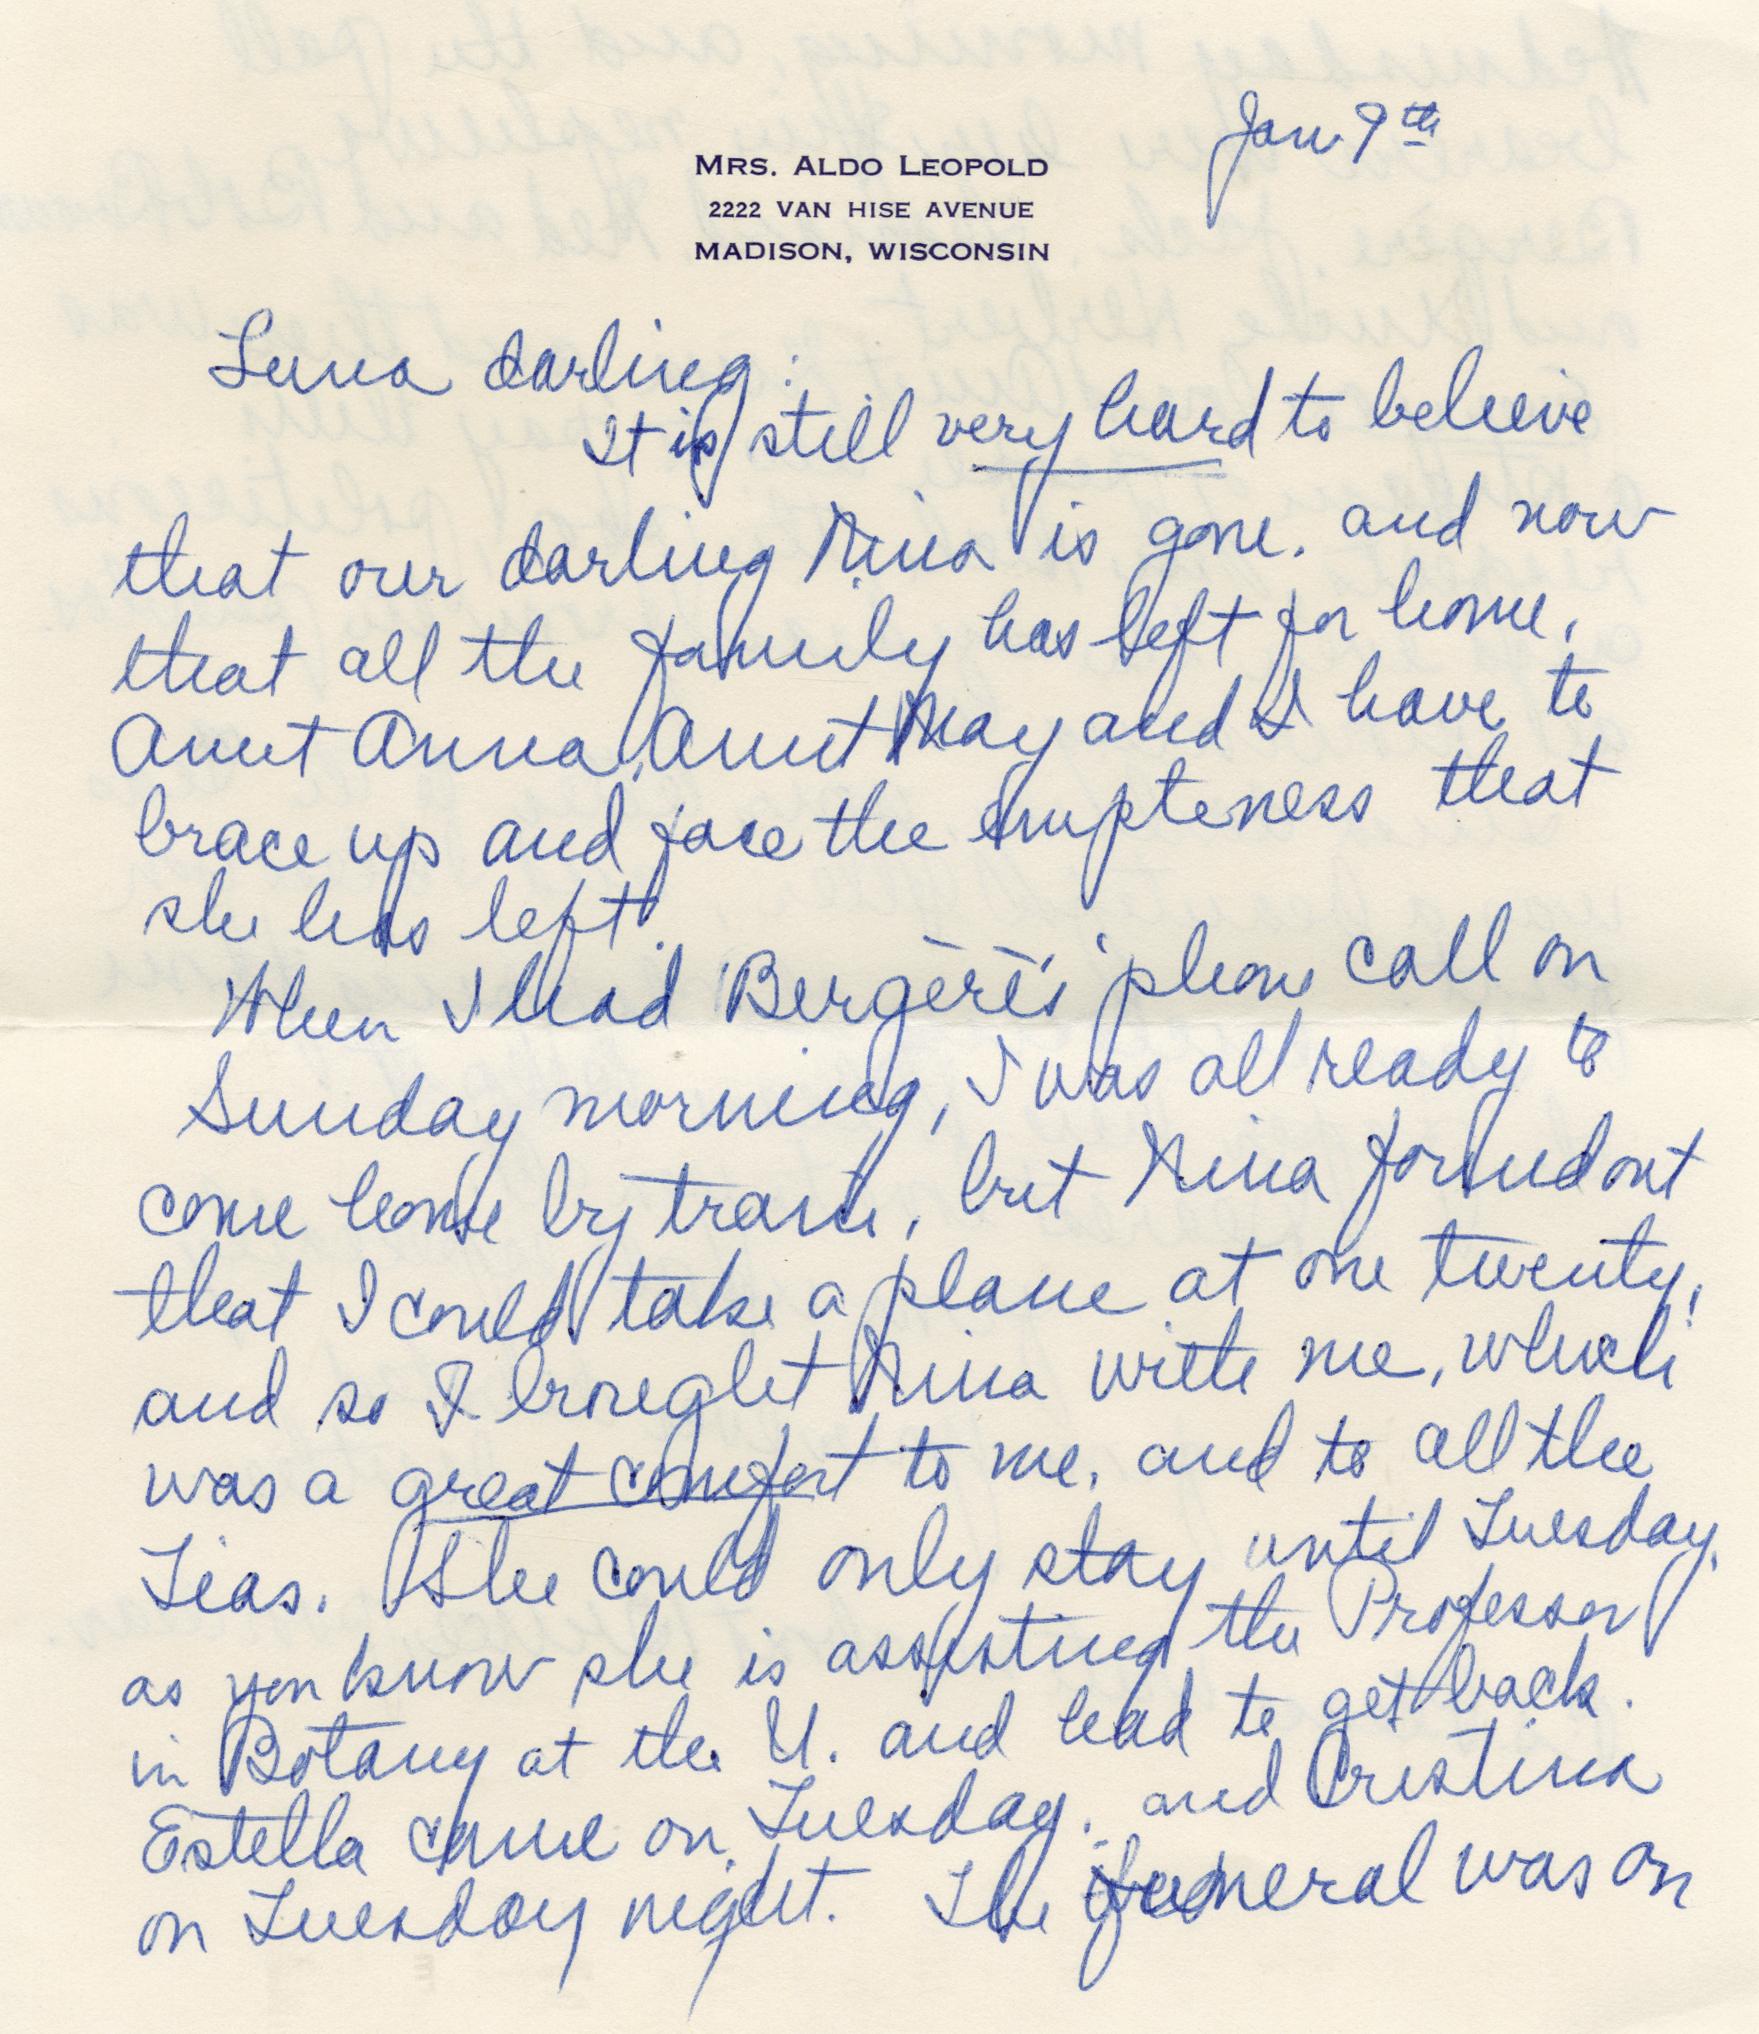 Jan 9th
MRS. ALDO LEOPOLD
2222 VAN HISE AVENUE
MADISON, WISCONSIN
Luna darling:
It is still very hard to believe
that our darling Nina is gone. and now
that all the family has left for home,
Aunt Anna, Aunt May and I have to
brace up and face the empteness that
she has left.
When I had 'Bergère's' phone call on
Sunday morning, I was all ready to
come home by train, but Nina found out
that I could take a plane at one twenty,
and so I brought Nina with me, which
was a great comfort to me, and to all the
Tias. She could only stay until Tuesday,
as you know she is assisting the Professor
in Botany at the U. and had to get back.
Estella came on Tuesday. and Cristina
on Tuesday night. The funeral was on